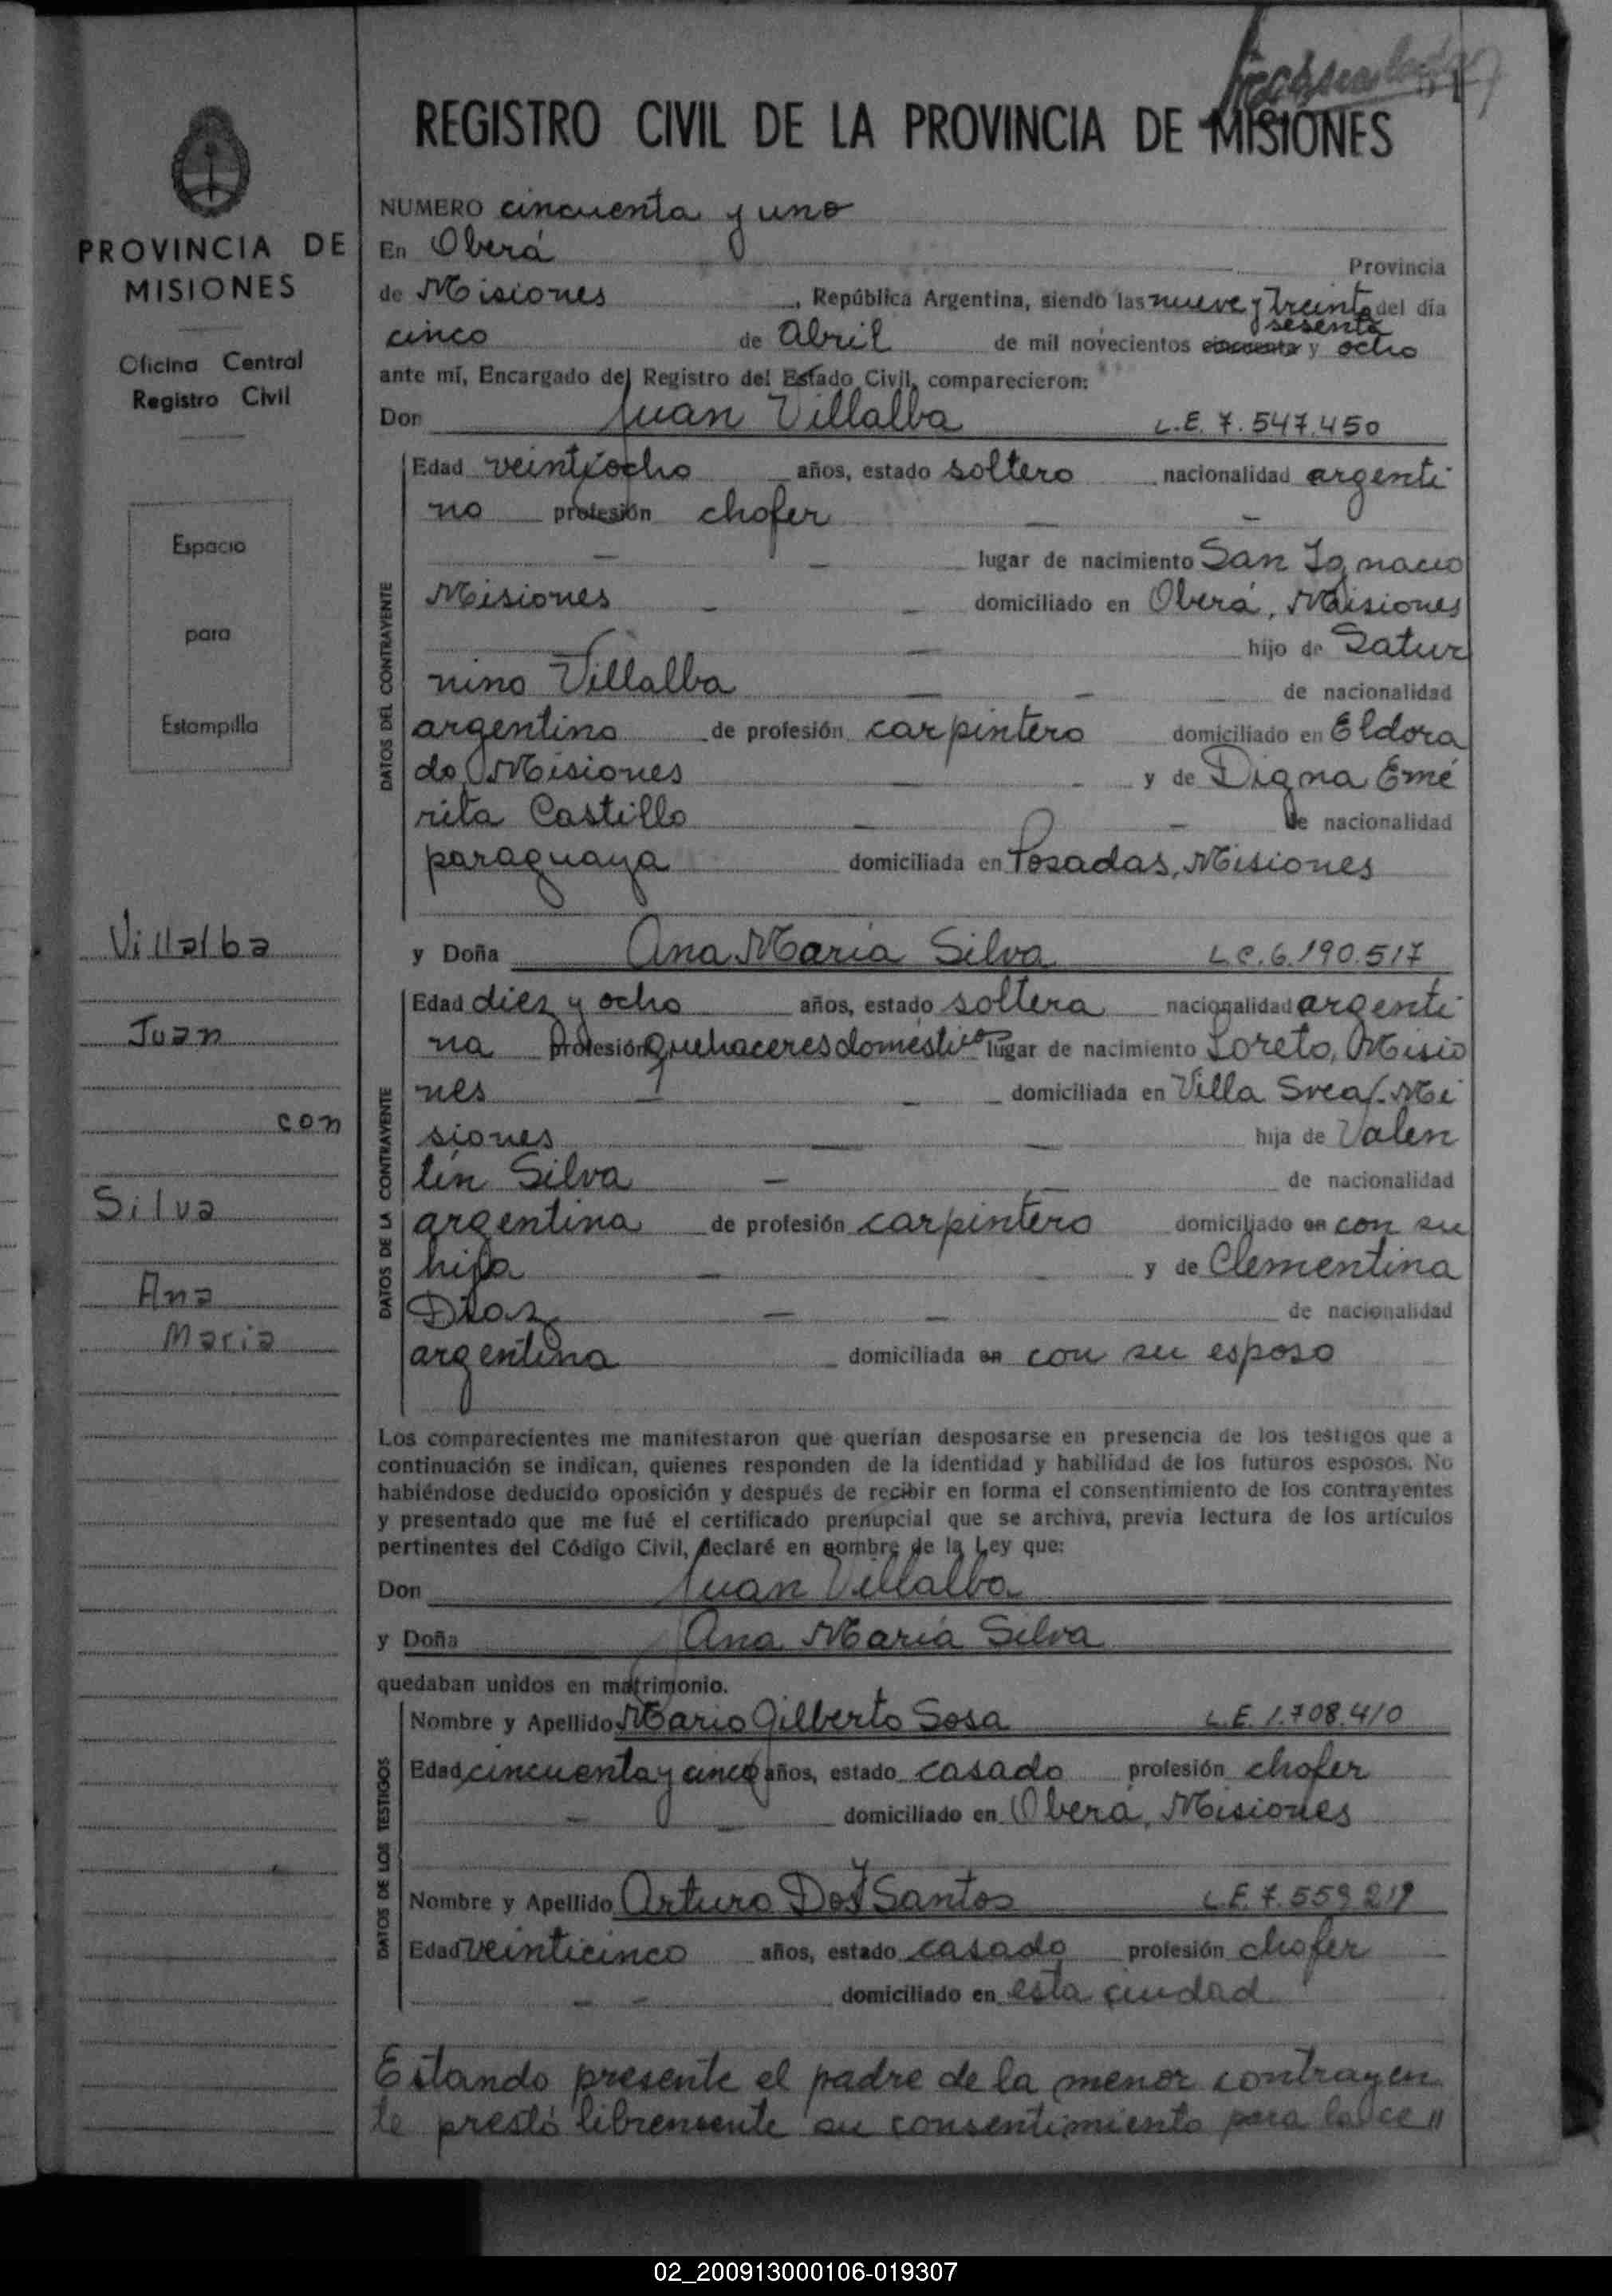 REGISTRO CIVIL DE LA PROVINCIA DE MISIONES
PROVINCIA DE
MISIONES
Oficina Central
Registro Civil
Espacio
para
Estampilla
Villalba
Juan
con
Silva
Ana
Maria
NUMERO cincuenta y uno
En Oberá Provincia
de Misiones, República Argentina, siendo las nueve y treinta del día
sesenta
cinco de Abril de mil novecientos cincuenta y ocho
ante mí, Encargado del Registro del Estado Civil, comparecieron:
Don Juan Villalba L.E. 7.547.450
DATOS DEL CONTRAYENTE
Edad veintiocho años, estado soltero nacionalidad argenti
no profesión chofer
lugar de nacimiento San Ignacio
Misiones domiciliado en Oberá, Misiones
hijo de Satur
nino Villalba de nacionalidad
argentino de profesión carpintero domiciliado en Eldora
do, Misiones y de Digna Emé
rita Castillo de nacionalidad
paraguaya domiciliada en Posadas, Misiones
y Doña Ana María Silva L.C. 6.190.517
DATOS DE LA CONTRAYENTE
Edad diez y ocho años, estado soltera nacionalidad argenti
na profesión quehaceres domésticos lugar de nacimiento Loreto, Misio
nes domiciliada en Villa Svea, Mi
siones hija de Valen
tín Silva de nacionalidad
argentina de profesión carpintero domiciliado en con su
hija y de Clementina
Diaz de nacionalidad
argentina domiciliada en con su esposo
Los comparecientes me manifestaron que querían desposarse en presencia de los testigos que a
continuación se indican, quienes responden de la identidad y habilidad de los futuros esposos. No
habiéndose deducido oposición y después de recibir en forma el consentimiento de los contrayentes
y presentado que me fué el certificado prenupcial que se archiva, previa lectura de los artículos
pertinentes del Código Civil, declaré en nombre de la Ley que:
Don Juan Villalba
y Doña Ana María Silva
quedaban unidos en matrimonio.
DATOS DE LOS TESTIGOS
Nombre y Apellido Mario Gilberto Sosa L.E. 1.708.410
Edad cincuenta y cinco años, estado casado profesión chofer
domiciliado en Oberá, Misiones
Nombre y Apellido Arturo Dos Santos L.E. 7.559.219
Edad veinticinco años, estado casado profesión chofer
domiciliado en esta ciudad
Estando presente el padre de la menor contrayen
te prestó libremente su consentimiento para la ce"
02_200913000106-019307